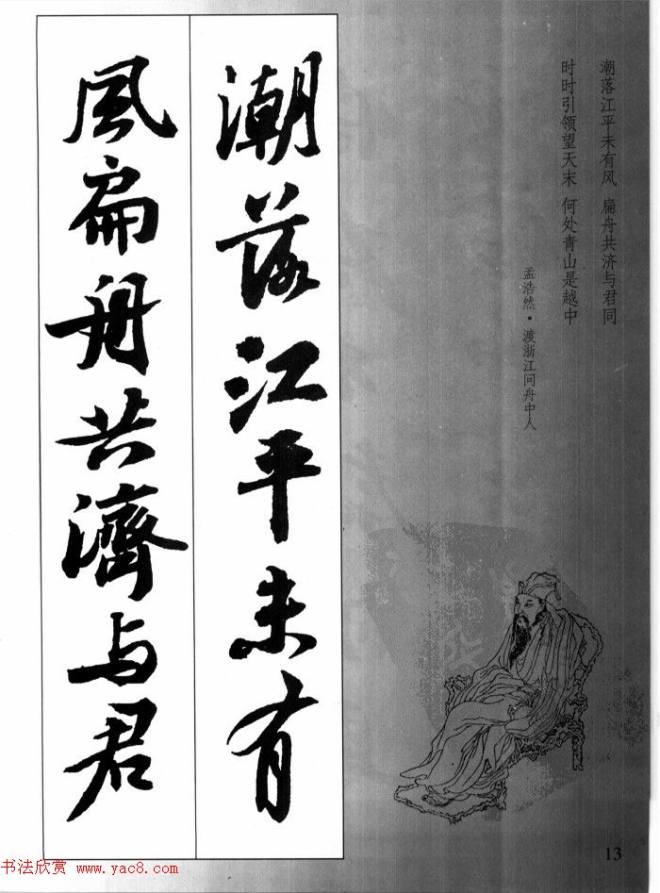 潮落江平未有风 扁舟共济与君同
时时引领望天末 何处青山是越中
孟浩然·渡浙江问舟中人
潮落江平未有
風扁舟共濟与君
13
书法欣赏 www.yac8.com